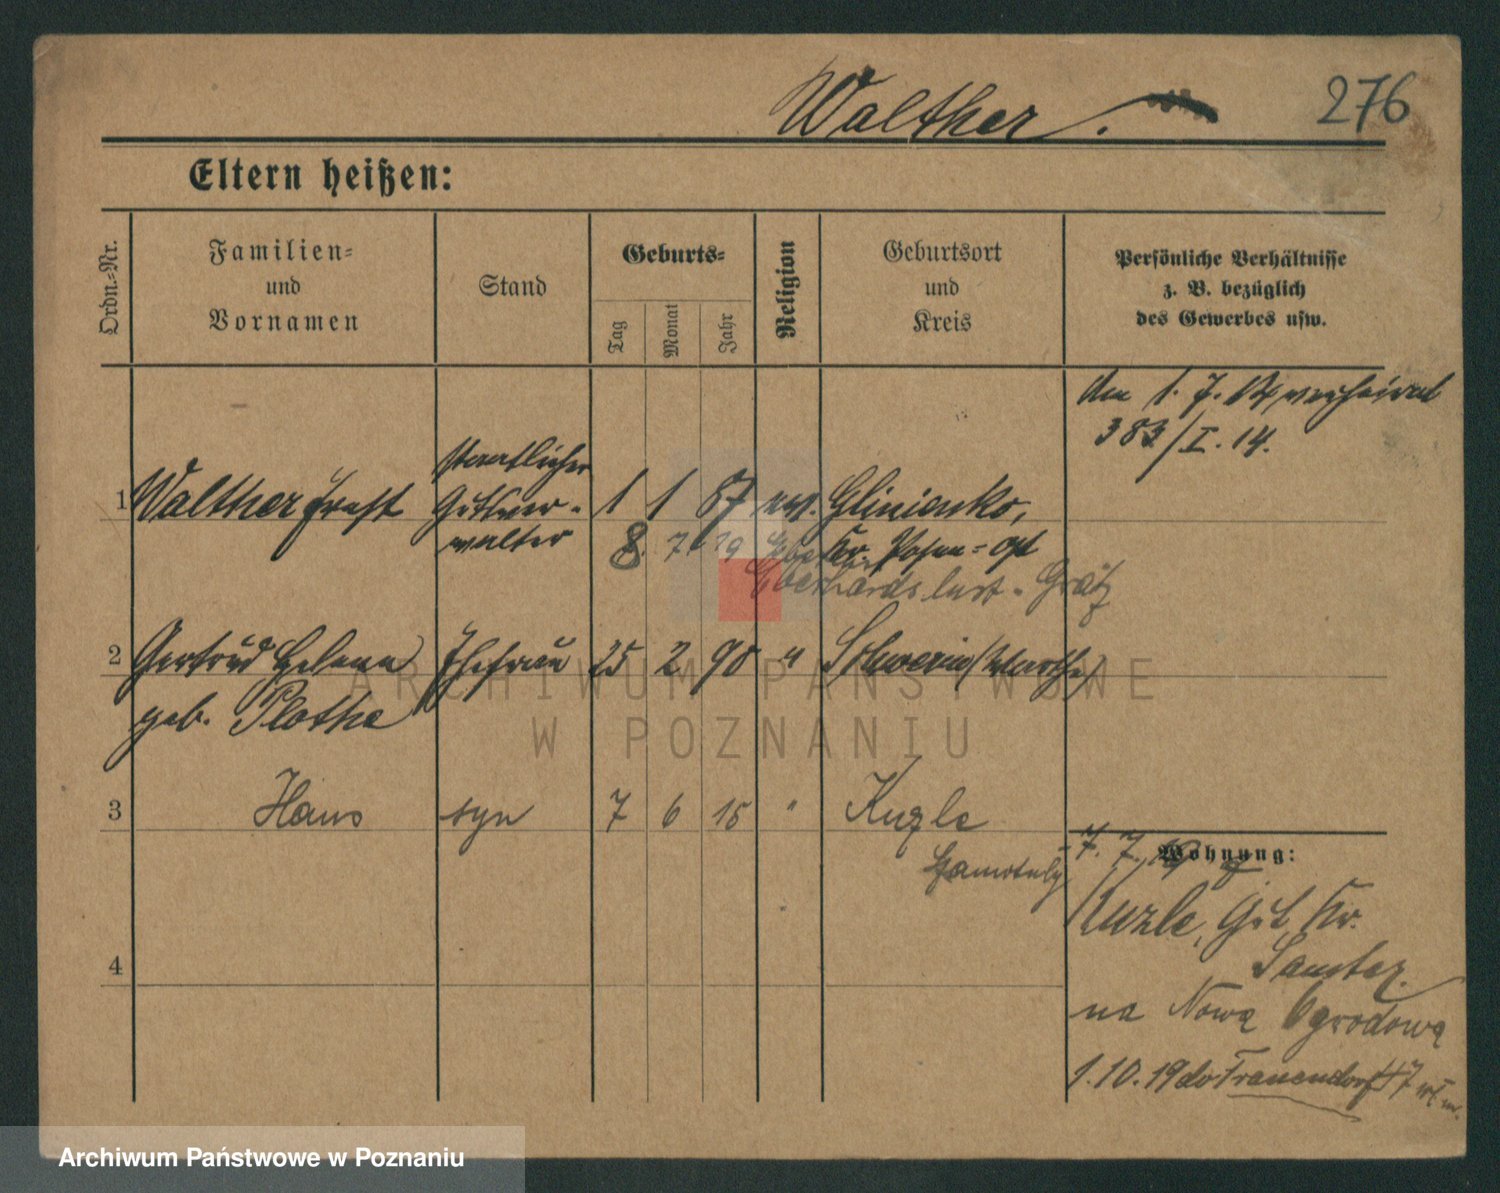 Walther.
276
Eltern heißen:
Ordn.-Nr.
Familien-
und
Vornamen
Stand
Geburts-
Tag
Monat
Jahr
Religion
Geburtsort
und
Kreis
Persönliche Verhältnisse
z. B. bezüglich
des Gewerbes usw.
Am 1. 7. 14 verheirat
383/I. 14.
1
Walther Ernst
staatlicher
Gutsver-
walter
1 1 87
ev.
Glinienko,
Kr. Posen-Ost
8. 7. 19
Eberhardslust - Grätz
2
Gertrud Helene
geb. Plothe
Ehefrau
25 2 90
"
Schwerin (Warthe)
3
Hans
syn
7 6 15
"
Kuzle
Szamotuly
Wohnung:
7. 7. 19
Kuzle, Gut, Kr.
Samter.
na Nową Ogrodową
1. 10. 19 do Frauendorf
4
ARCHIWUM PAŃSTWOWE
W POZNANIU
Archiwum Państwowe w Poznaniu